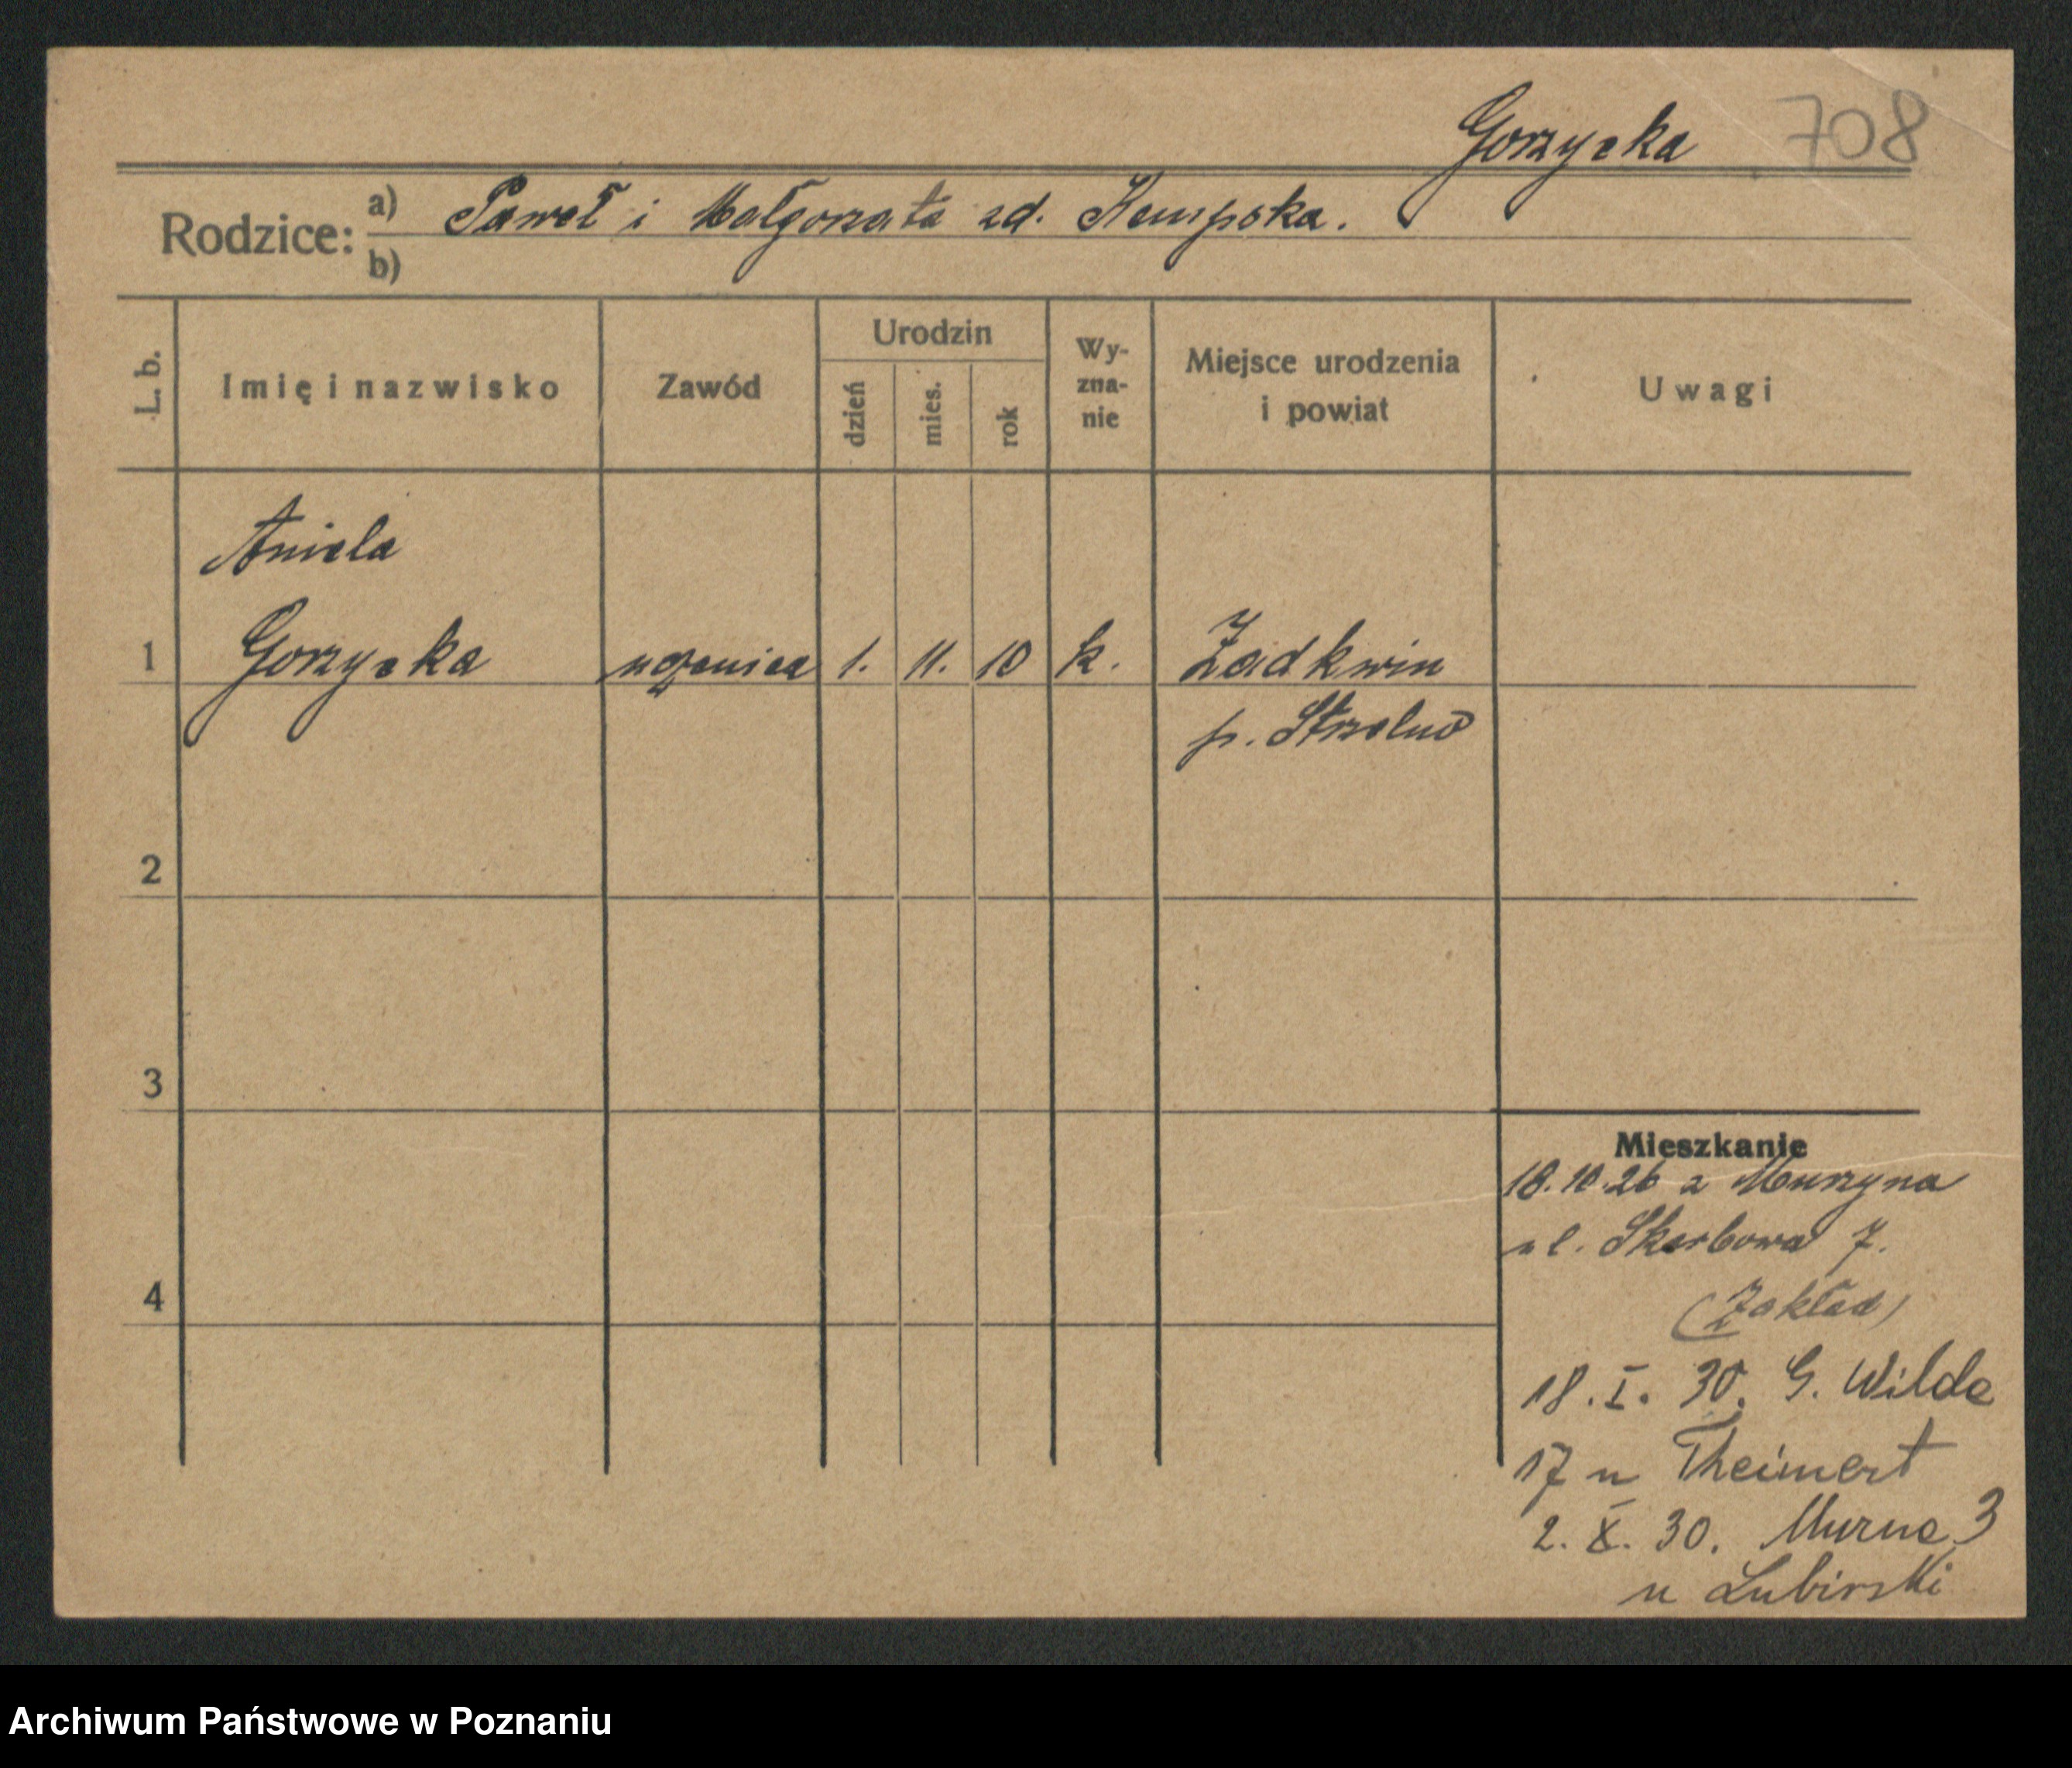 Gorzycka 708
Rodzice: a) Paweł i Małgorzata zd. Kempska.
b)
L. b. Imię i nazwisko Zawód Urodzin dzień mies. rok Wy-zna-nie Miejsce urodzenia i powiat Uwagi
Aniela
1 Gorzycka uczenica 1. 11. 10 k. Żadkwin
p. Strzelno
2
3
Mieszkanie
18.10.26 z Murzyna
ul. Skarbowa 7.
4 (Zakład)
18. I. 30. G. Wilda
17 u Theinert
2. X. 30. Murna 3
u Lubirski
Archiwum Państwowe w Poznaniu